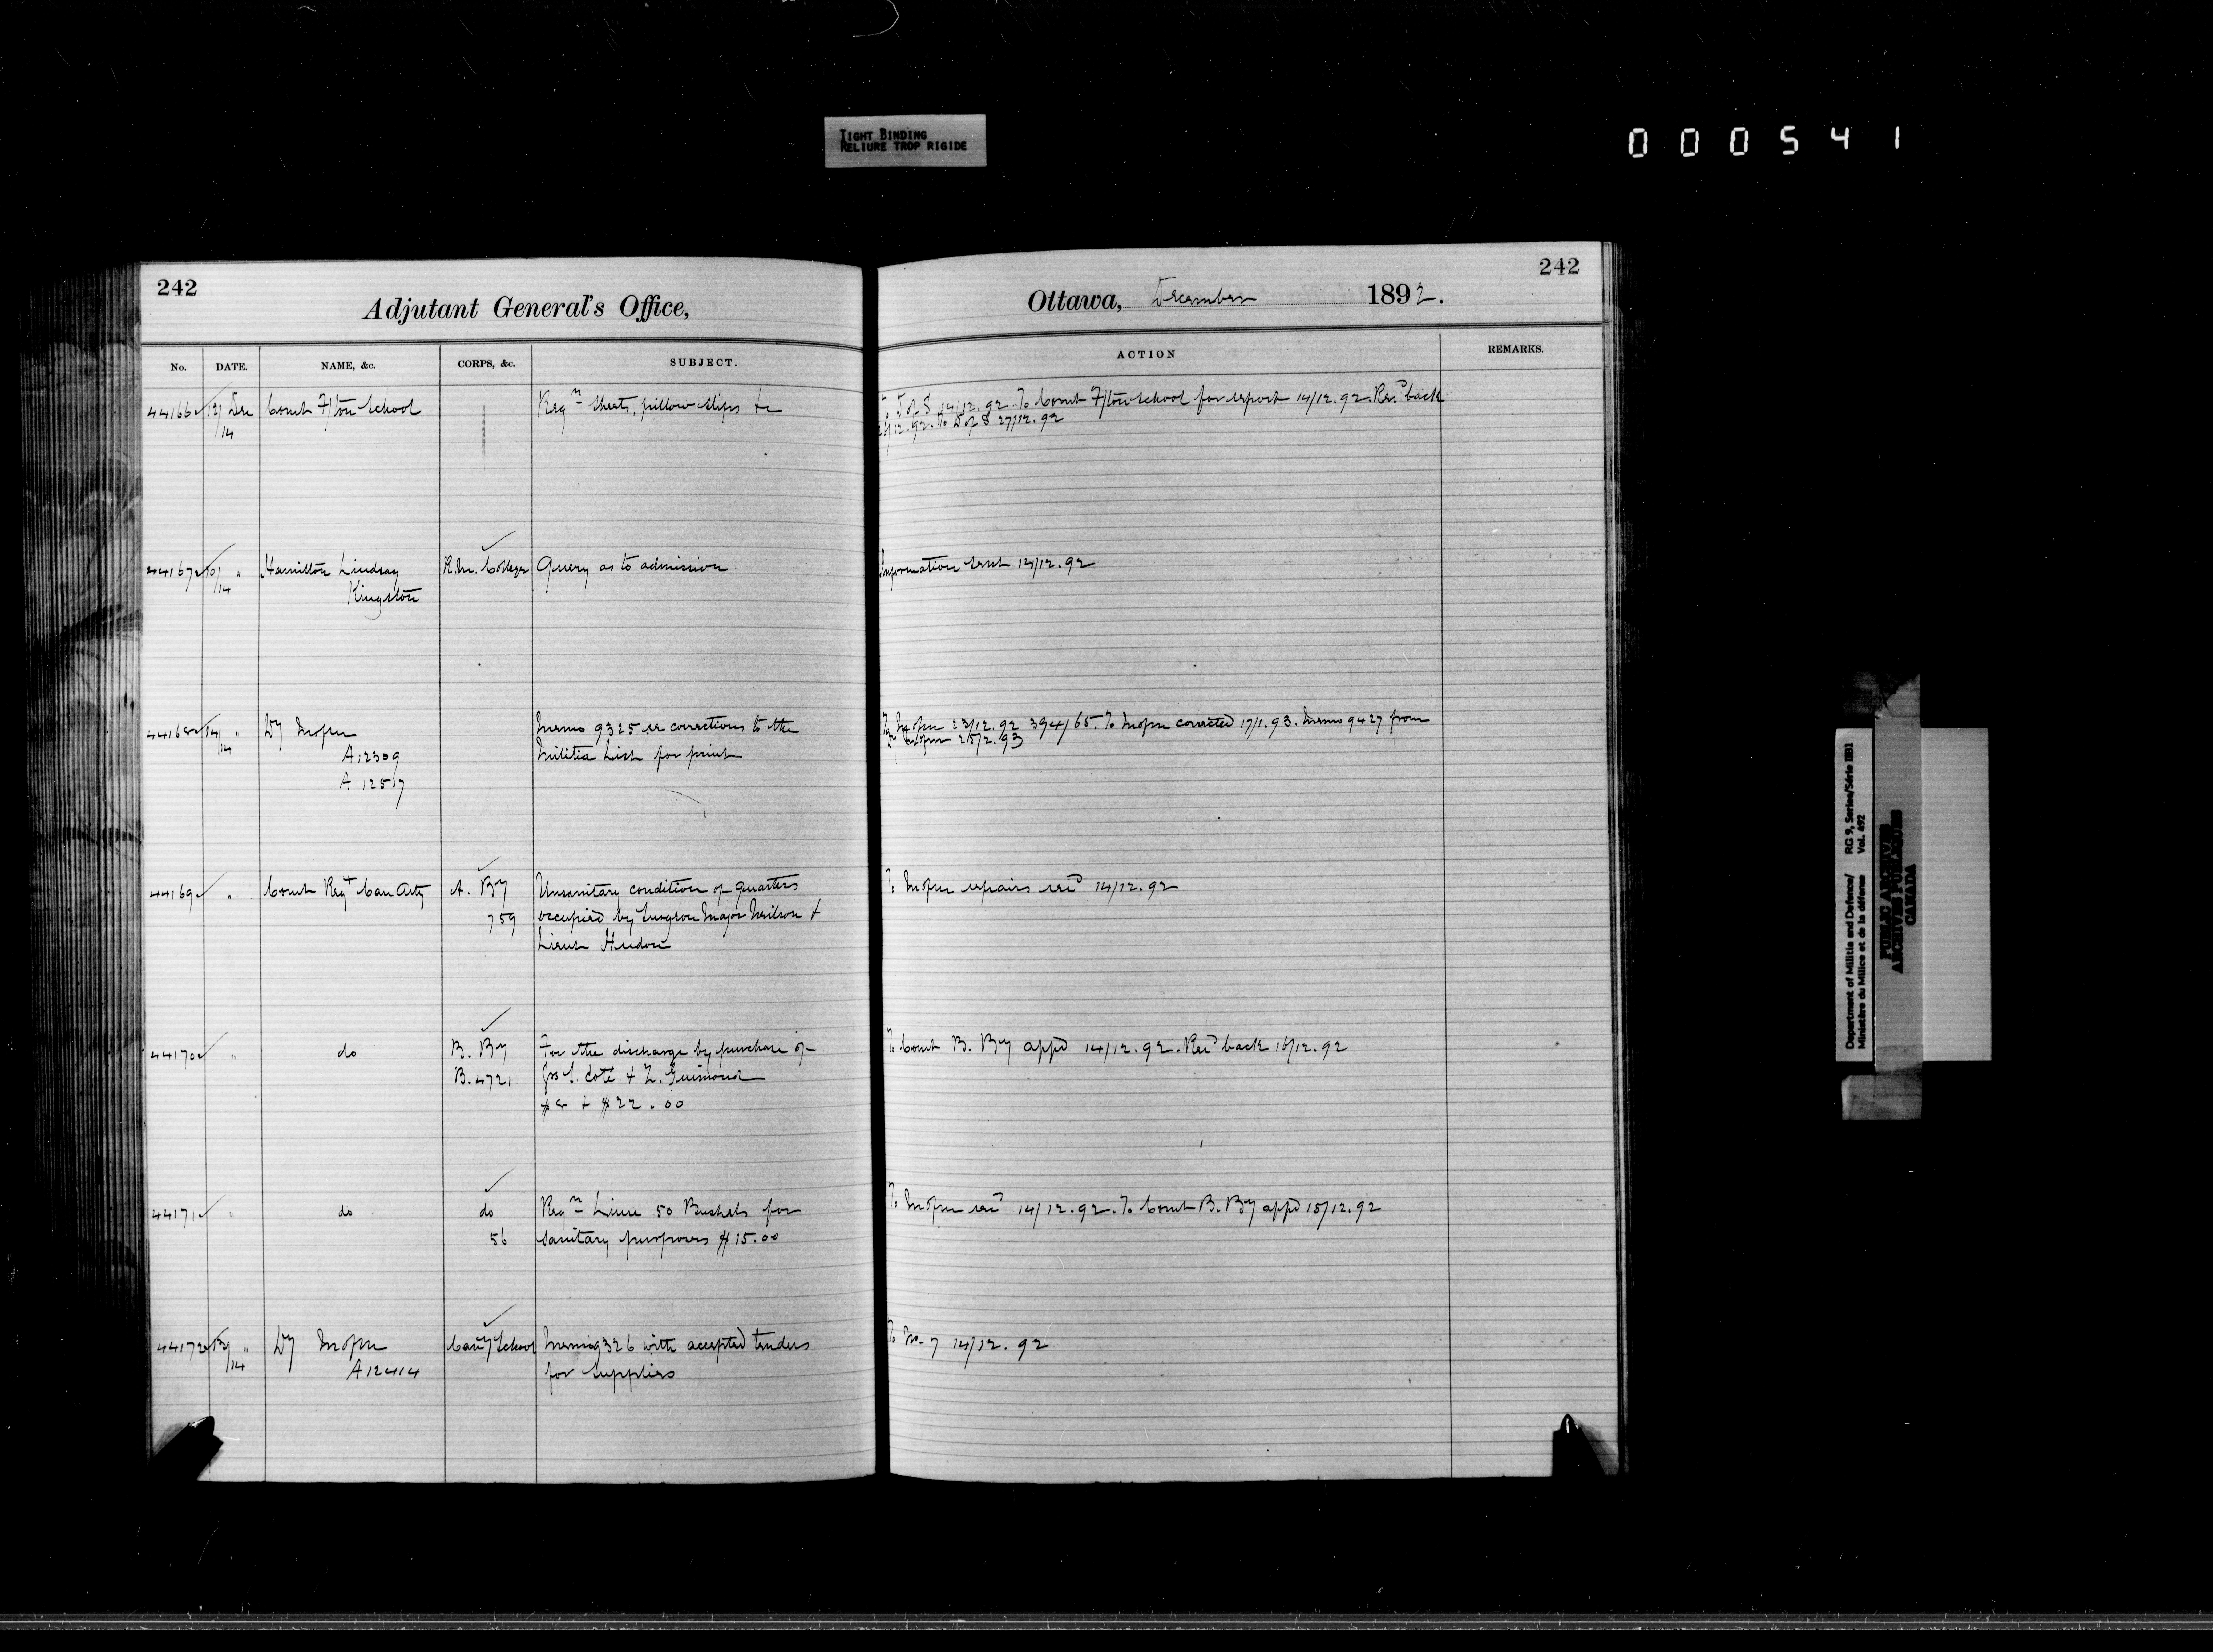 TIGHT BINDING
RELIURE TROP RIGIDE
000541
242
Adjutant General's Office,
No. DATE. NAME, &c. CORPS, &c. SUBJECT.
44166 12/14 Dec Comt F/ton School Reqn Sheets, pillow slips &c
44167 10/14 " Hamilton Lindsay R.M. College Query as to admission
Kingston
44168 14/14 " Dy Memo 9325 re corrections to the
A12309 Militia List for print
A 12517
44169 " Comt Regt Can Arty A. By Unsanitary condition of quarters
759 occupied by Surgeon Major Neilson &
Lieut Hudon
44170 " do B. By For the discharge by purchase of
B.4721 Grs S. Coté & Z. Guimond
$8 & $22.00
44171 " do do Reqn Lime 50 Bushels for
56 sanitary purposes $15.00
44172 13/14 " Dy Cavy School Memo 9326 with accepted tenders
A12414 for supplies
242
Ottawa, December 1892.
ACTION REMARKS.
To D of S 14/12.92. To Comt F/ton School for report 14/12.92. Recd back
12.92. To D of S 27/12.92
Information sent 14/12.92
To 23/12.92 394/65. To corrected 17/1.93. Memo 9427 from
Dy 25/2.93
To repairs recd 14/12.92
To Comt B. By appd 14/12.92. Recd back 16/12.92
To 14/12.92. To Comt B. By appd 15/12.92
To M-7 14/12.92
Department of Militia and Defence/ RG 9, Series/Série IIB1
Ministère du Milice et de la défense Vol. 492
PUBLIC ARCHIVES
ARCHIVES PUBLIQUES
CANADA